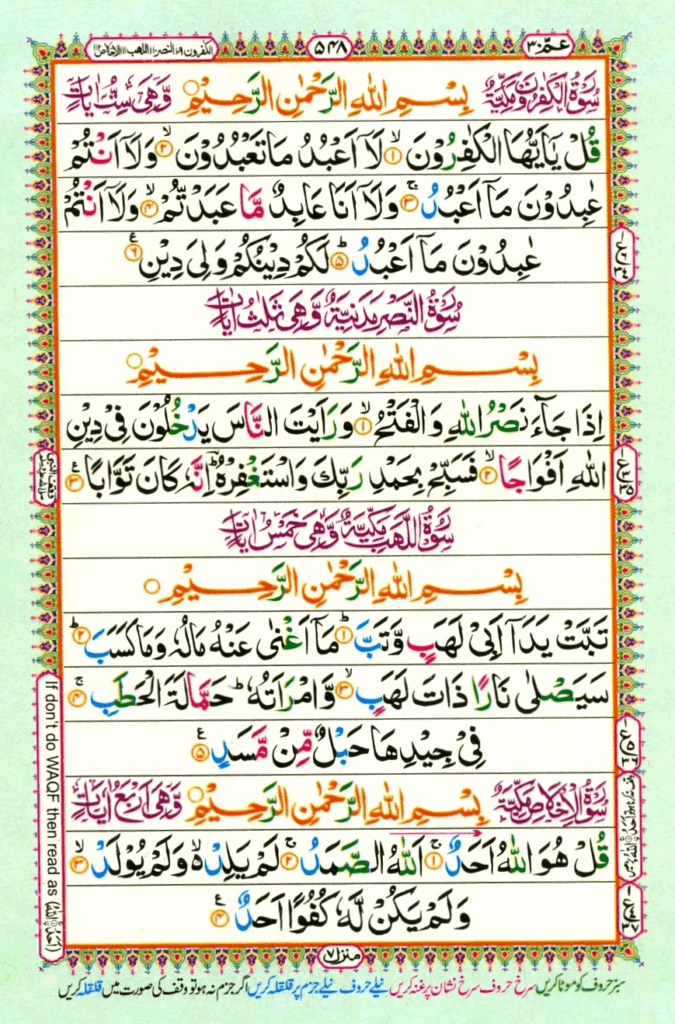 عمّ ۳۰
۵۴۸
الکٰفرون ۱۰۹ النصر ۱۱۰ اللھب ۱۱۱ الاخلاص ۱۱۲
سُوْرَةُ الْكٰفِرُوْنَ مَكِّيَّةٌ بِسْمِ اللهِ الرَّحْمٰنِ الرَّحِيْمِ وَّهِيَ سِتُّ اٰيَاتٍ
قُلْ يٰۤاَيُّهَا الْكٰفِرُوْنَ ۙ﴿۱﴾ لَاۤ اَعْبُدُ مَا تَعْبُدُوْنَ ۙ﴿۲﴾ وَلَاۤ اَنْتُمْ
عٰبِدُوْنَ مَاۤ اَعْبُدُ ۚ﴿۳﴾ وَلَاۤ اَنَا عَابِدٌ مَّا عَبَدْتُّمْ ۙ﴿۴﴾ وَلَاۤ اَنْتُمْ
عٰبِدُوْنَ مَاۤ اَعْبُدُ ؕ﴿۵﴾ لَكُمْ دِيْنُكُمْ وَلِيَ دِيْنِ ﴿۶﴾
سُوْرَةُ النَّصْرِ مَدَنِيَّةٌ وَّهِيَ ثَلٰثُ اٰيَاتٍ
بِسْمِ اللهِ الرَّحْمٰنِ الرَّحِيْمِ
اِذَا جَآءَ نَصْرُ اللهِ وَالْفَتْحُ ۙ﴿۱﴾ وَرَاَيْتَ النَّاسَ يَدْخُلُوْنَ فِيْ دِيْنِ
اللهِ اَفْوَاجًا ۙ﴿۲﴾ فَسَبِّحْ بِحَمْدِ رَبِّكَ وَاسْتَغْفِرْهُ ؕ اِنَّهٗ كَانَ تَوَّابًا ﴿۳﴾
سُوْرَةُ اللَّهَبِ مَكِّيَّةٌ وَّهِيَ خَمْسُ اٰيَاتٍ
بِسْمِ اللهِ الرَّحْمٰنِ الرَّحِيْمِ
تَبَّتْ يَدَاۤ اَبِيْ لَهَبٍ وَّتَبَّ ؕ﴿۱﴾ مَاۤ اَغْنٰى عَنْهُ مَالُهٗ وَمَا كَسَبَ ؕ﴿۲﴾
سَيَصْلٰى نَارًا ذَاتَ لَهَبٍ ۙ﴿۳﴾ وَّامْرَاَتُهٗ ؕ حَمَّالَةَ الْحَطَبِ ۚ﴿۴﴾
فِيْ جِيْدِهَا حَبْلٌ مِّنْ مَّسَدٍ ﴿۵﴾
سُوْرَةُ الْاِخْلَاصِ مَكِّيَّةٌ بِسْمِ اللهِ الرَّحْمٰنِ الرَّحِيْمِ وَّهِيَ اَرْبَعُ اٰيَاتٍ
قُلْ هُوَ اللهُ اَحَدٌ ۚ﴿۱﴾ اَللهُ الصَّمَدُ ۚ﴿۲﴾ لَمْ يَلِدْ ۙ۬ وَلَمْ يُوْلَدْ ۙ﴿۳﴾
وَلَمْ يَكُنْ لَّهٗ كُفُوًا اَحَدٌ ﴿۴﴾
If don't do WAQF then read as
منزل ۷
سبز حروف کو موٹا کریں سرخ حروف سرخ نشان پر غنہ کریں نیلے حروف نیلے جزم پر قلقلہ کریں اگر جزم نہ ہو تو وقف کی صورت میں قلقلہ کریں